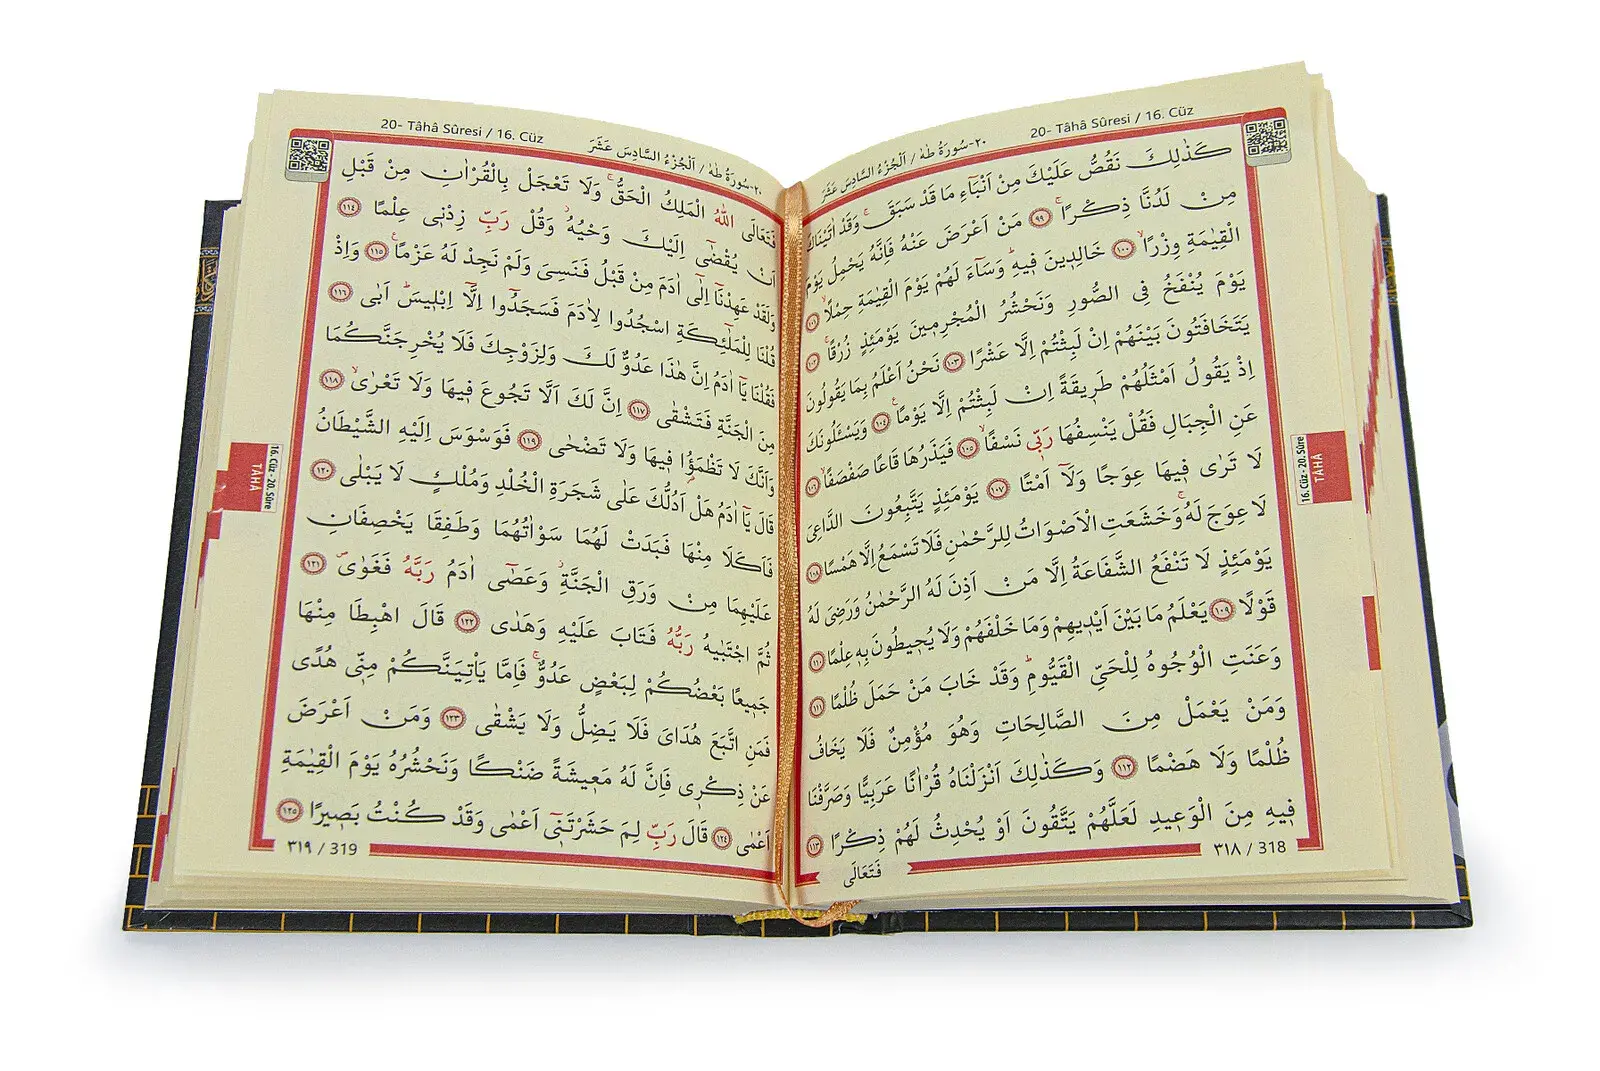 20- Tâhâ Sûresi / 16. Cüz
٢٠-سُورَةُ طٰهٰ / اَلْجُزْءُ السَّادِسَ عَشَرَ
كَذٰلِكَ نَقُصُّ عَلَيْكَ مِنْ اَنْبَٓاءِ مَا قَدْ سَبَقَۚ وَقَدْ اٰتَيْنَاكَ
مِنْ لَدُنَّا ذِكْرًاۚ ﴿٩٩﴾ مَنْ اَعْرَضَ عَنْهُ فَاِنَّهُ يَحْمِلُ يَوْمَ
الْقِيٰمَةِ وِزْرًاۙ ﴿١٠٠﴾ خَالِد۪ينَ ف۪يهِۜ وَسَٓاءَ لَهُمْ يَوْمَ الْقِيٰمَةِ حِمْلًاۙ ﴿١٠١﴾
يَوْمَ يُنْفَخُ فِي الصُّورِ وَنَحْشُرُ الْمُجْرِم۪ينَ يَوْمَئِذٍ زُرْقًاۚ ﴿١٠٢﴾
يَتَخَافَتُونَ بَيْنَهُمْ اِنْ لَبِثْتُمْ اِلَّا عَشْرًا ﴿١٠٣﴾ نَحْنُ اَعْلَمُ بِمَا يَقُولُونَ
اِذْ يَقُولُ اَمْثَلُهُمْ طَر۪يقَةً اِنْ لَبِثْتُمْ اِلَّا يَوْمًاۚ ﴿١٠٤﴾ وَيَسْـَٔلُونَكَ
عَنِ الْجِبَالِ فَقُلْ يَنْسِفُهَا رَبّ۪ي نَسْفًاۙ ﴿١٠٥﴾ فَيَذَرُهَا قَاعًا صَفْصَفًاۙ ﴿١٠٦﴾
لَا تَرٰى ف۪يهَا عِوَجًا وَلَٓا اَمْتًا ﴿١٠٧﴾ يَوْمَئِذٍ يَتَّبِعُونَ الدَّاعِيَ
لَا عِوَجَ لَهُۚ وَخَشَعَتِ الْاَصْوَاتُ لِلرَّحْمٰنِ فَلَا تَسْمَعُ اِلَّا هَمْسًا ﴿١٠٨﴾
يَوْمَئِذٍ لَا تَنْفَعُ الشَّفَاعَةُ اِلَّا مَنْ اَذِنَ لَهُ الرَّحْمٰنُ وَرَضِيَ لَهُ
قَوْلًا ﴿١٠٩﴾ يَعْلَمُ مَا بَيْنَ اَيْد۪يهِمْ وَمَا خَلْفَهُمْ وَلَا يُح۪يطُونَ بِه۪ عِلْمًا ﴿١١٠﴾
وَعَنَتِ الْوُجُوهُ لِلْحَيِّ الْقَيُّومِۜ وَقَدْ خَابَ مَنْ حَمَلَ ظُلْمًا ﴿١١١﴾
وَمَنْ يَعْمَلْ مِنَ الصَّالِحَاتِ وَهُوَ مُؤْمِنٌ فَلَا يَخَافُ
ظُلْمًا وَلَا هَضْمًا ﴿١١٢﴾ وَكَذٰلِكَ اَنْزَلْنَاهُ قُرْاٰنًا عَرَبِيًّا وَصَرَّفْنَا
ف۪يهِ مِنَ الْوَع۪يدِ لَعَلَّهُمْ يَتَّقُونَ اَوْ يُحْدِثُ لَهُمْ ذِكْرًا ﴿١١٣﴾
٣١٨ / 318
فَتَعَالَى
16. Cüz - 20. Sûre
TÂHÂ
20- Tâhâ Sûresi / 16. Cüz
٢٠-سُورَةُ طٰهٰ / اَلْجُزْءُ السَّادِسَ عَشَرَ
فَتَعَالَى اللّٰهُ الْمَلِكُ الْحَقُّۚ وَلَا تَعْجَلْ بِالْقُرْاٰنِ مِنْ قَبْلِ
اَنْ يُقْضٰٓى اِلَيْكَ وَحْيُهُۘ وَقُلْ رَبِّ زِدْن۪ي عِلْمًا ﴿١١٤﴾
وَلَقَدْ عَهِدْنَٓا اِلٰٓى اٰدَمَ مِنْ قَبْلُ فَنَسِيَ وَلَمْ نَجِدْ لَهُ عَزْمًا۟ ﴿١١٥﴾ وَاِذْ
قُلْنَا لِلْمَلٰٓئِكَةِ اسْجُدُوا لِاٰدَمَ فَسَجَدُٓوا اِلَّٓا اِبْل۪يسَۜ اَبٰى ﴿١١٦﴾
فَقُلْنَا يَٓا اٰدَمُ اِنَّ هٰذَا عَدُوٌّ لَكَ وَلِزَوْجِكَ فَلَا يُخْرِجَنَّكُمَا
مِنَ الْجَنَّةِ فَتَشْقٰى ﴿١١٧﴾ اِنَّ لَكَ اَلَّا تَجُوعَ ف۪يهَا وَلَا تَعْرٰىۙ ﴿١١٨﴾
وَاَنَّكَ لَا تَظْمَؤُ۬ا ف۪يهَا وَلَا تَضْحٰى ﴿١١٩﴾ فَوَسْوَسَ اِلَيْهِ الشَّيْطَانُ
قَالَ يَٓا اٰدَمُ هَلْ اَدُلُّكَ عَلٰى شَجَرَةِ الْخُلْدِ وَمُلْكٍ لَا يَبْلٰى ﴿١٢٠﴾
فَاَكَلَا مِنْهَا فَبَدَتْ لَهُمَا سَوْاٰتُهُمَا وَطَفِقَا يَخْصِفَانِ
عَلَيْهِمَا مِنْ وَرَقِ الْجَنَّةِۘ وَعَصٰٓى اٰدَمُ رَبَّهُ فَغَوٰىۖ ﴿١٢١﴾
ثُمَّ اجْتَبٰيهُ رَبُّهُ فَتَابَ عَلَيْهِ وَهَدٰى ﴿١٢٢﴾ قَالَ اهْبِطَا مِنْهَا
جَم۪يعًا بَعْضُكُمْ لِبَعْضٍ عَدُوٌّۚ فَاِمَّا يَأْتِيَنَّكُمْ مِنّ۪ي هُدًى
فَمَنِ اتَّبَعَ هُدَايَ فَلَا يَضِلُّ وَلَا يَشْقٰى ﴿١٢٣﴾ وَمَنْ اَعْرَضَ
عَنْ ذِكْر۪ي فَاِنَّ لَهُ مَع۪يشَةً ضَنْكًا وَنَحْشُرُهُ يَوْمَ الْقِيٰمَةِ
اَعْمٰى ﴿١٢٤﴾ قَالَ رَبِّ لِمَ حَشَرْتَن۪ٓي اَعْمٰى وَقَدْ كُنْتُ بَص۪يرًا ﴿١٢٥﴾
٣١٩ / 319
16. Cüz - 20. Sûre
TÂHÂ